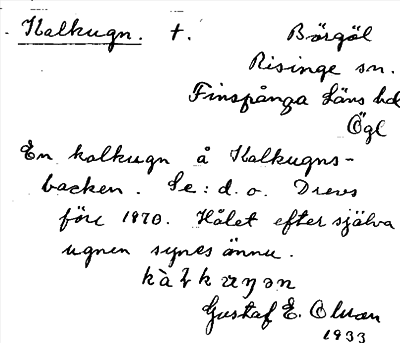 Kalkugn. †. Börgöl
Risinge sn.
Finspånga läns hd
Ögl
En kalkugn å Kalkugns-
backen. Se: d. o. Drevs
före 1870. Hålet efter själva
ugnen synes ännu.
Gustaf E. Olsson
1933